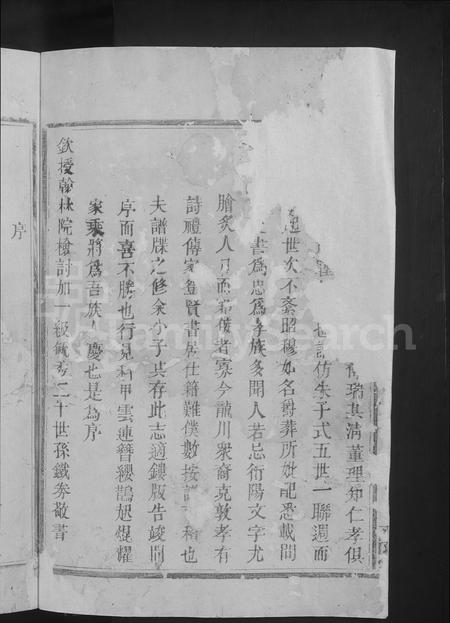 瑞其淸董理知仁孝俱
仿朱子式五世一聯週而
世次不紊昭穆如名爵葬所妣配悉載間
書爲忠爲孝族多聞人若忌衍陽文字尤
膾炙人口而
者寡今龍川衆裔克敦孝有
詩禮傳家登賢書居仕籍難僕數按
也
夫譜牒之修余小子其存此志適鏤版告竣問
序而喜不勝也行見科甲雲連簪纓鵲起焜耀
家乘將爲吾族人慶也是爲序
欽授翰林院檢討加一級
二十世孫鐵券敬書
序
FamilySearch